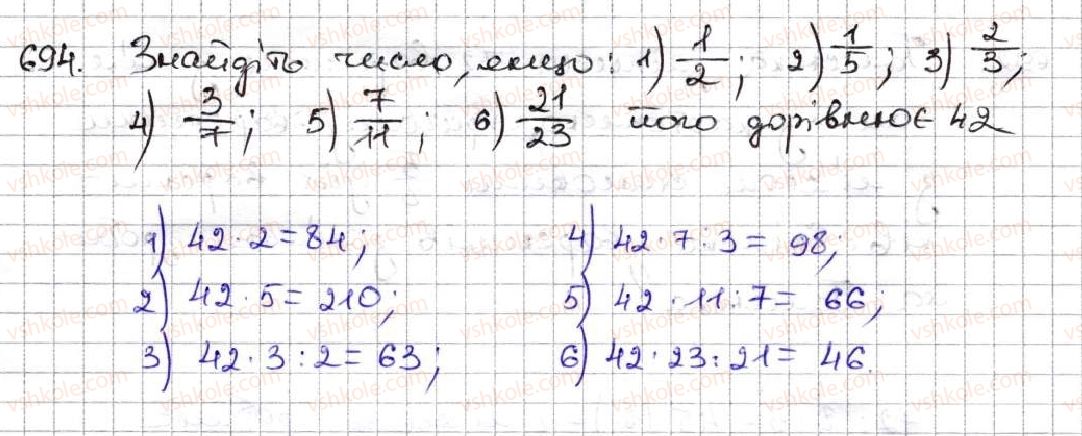 694. Знайдіть число, якщо: 1) 1/2; 2) 1/5; 3) 2/3;
4) 3/7; 5) 7/11; 6) 21/23 його дорівнює 42
1) 42 · 2 = 84;
2) 42 · 5 = 210;
3) 42 · 3 : 2 = 63;
4) 42 · 7 : 3 = 98;
5) 42 · 11 : 7 = 66;
6) 42 · 23 : 21 = 46.
vshkole.com